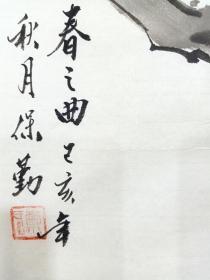 春之曲己亥年
秋月保勤